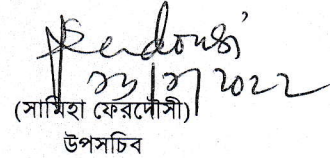 Ferdousi
২৩/২/2022
(সামিহা ফেরদৌসী)
উপসচিব